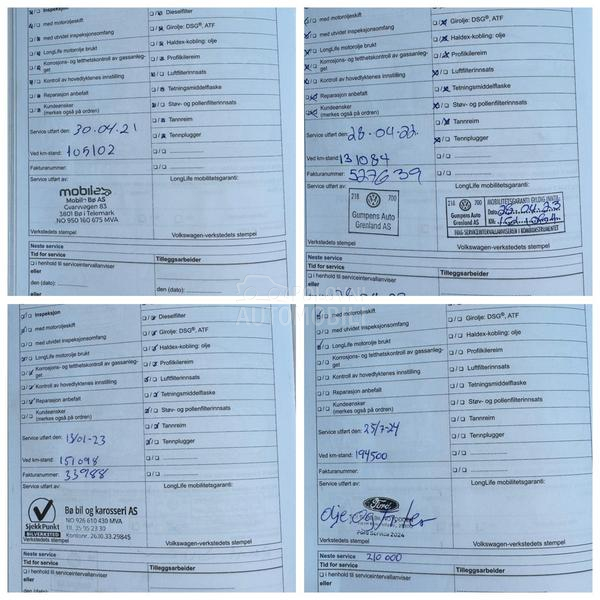 Inspeksjon
med motoroljeskift
med utvidet inspeksjonsomfang
LongLife motorolje brukt
Korrosjons- og tetthetskontroll av gassanleg-
get
Kontroll av hovedlyktenes innstilling
Reparasjon anbefalt
Kundeønsker
(merkes også på ordren)
Service utført den: 30.04.21
Ved km-stand: 105102
Fakturanummer:
Service utført av:
mobile
Mobile Bø AS
Gvarvvegen 83
3801 Bø i Telemark
NO 950 160 675 MVA
Verkstedets stempel
Dieselfilter
Girolje: DSG®, ATF
Haldex-kobling: olje
Profilkilereim
Luftfilterinnsats
Tetningsmiddelflaske
Støv- og pollenfilterinnsats
Tannreim
Tennplugger
LongLife mobilitetsgaranti:
Volkswagen-verkstedets stempel
Neste service
Tid for service
Tilleggsarbeider
i henhold til serviceintervallanviser
eller
den (dato):
med motoroljeskift
med utvidet inspeksjonsomfang
LongLife motorolje brukt
Korrosjons- og tetthetskontroll av gassanleg-
get
Kontroll av hovedlyktenes innstilling
Reparasjon anbefalt
Kundeønsker
(merkes også på ordren)
Service utført den: 28.04.22.
Ved km-stand: 131084
Fakturanummer: 527639
Service utført av:
218 700
Gumpens Auto
Grenland AS
Verkstedets stempel
Girolje: DSG®, ATF
Haldex-kobling: olje
Profilkilereim
Luftfilterinnsats
Tetningsmiddelflaske
Støv- og pollenfilterinnsats
Tannreim
Tennplugger
LongLife mobilitetsgaranti:
218 700
Gumpens Auto
Grenland AS
MOBILITETSGARANTI GYLDIG INNTIL
Dato: 28.04.23
KM:
Volkswagen-verkstedets stempel
Neste service
Tid for service
Tilleggsarbeider
i henhold til serviceintervallanviser
eller
den (dato):
AUTOMOBILI
Inspeksjon
med motoroljeskift
med utvidet inspeksjonsomfang
LongLife motorolje brukt
Korrosjons- og tetthetskontroll av gassanleg-
get
Kontroll av hovedlyktenes innstilling
Reparasjon anbefalt
Kundeønsker
(merkes også på ordren)
Service utført den: 13/01-23
Ved km-stand: 151098
Fakturanummer: 33988
Service utført av:
SjekkPunkt
BILVERKSTED
Bø bil og karosseri AS
NO 926 610 430 MVA
Tlf. 35 95 23 30
Kontonr. 2630.33.29845
Verkstedets stempel
Dieselfilter
Girolje: DSG®, ATF
Haldex-kobling: olje
Profilkilereim
Luftfilterinnsats
Tetningsmiddelflaske
Støv- og pollenfilterinnsats
Tannreim
Tennplugger
LongLife mobilitetsgaranti:
Volkswagen-verkstedets stempel
Neste service
Tid for service
Tilleggsarbeider
i henhold til serviceintervallanviser
eller
den (dato):
med motoroljeskift
med utvidet inspeksjonsomfang
LongLife motorolje brukt
Korrosjons- og tetthetskontroll av gassanleg-
get
Kontroll av hovedlyktenes innstilling
Reparasjon anbefalt
Kundeønsker
(merkes også på ordren)
Service utført den: 25/7-24
Ved km-stand: 194500
Fakturanummer:
Service utført av:
Ford
olje og filter
Ford Service 2024
Verkstedets stempel
Girolje: DSG®, ATF
Haldex-kobling: olje
Profilkilereim
Luftfilterinnsats
Tetningsmiddelflaske
Støv- og pollenfilterinnsats
Tannreim
Tennplugger
LongLife mobilitetsgaranti:
Volkswagen-verkstedets stempel
Neste service 210 000
Tid for service
Tilleggsarbeider
i henhold til serviceintervallanviser
eller